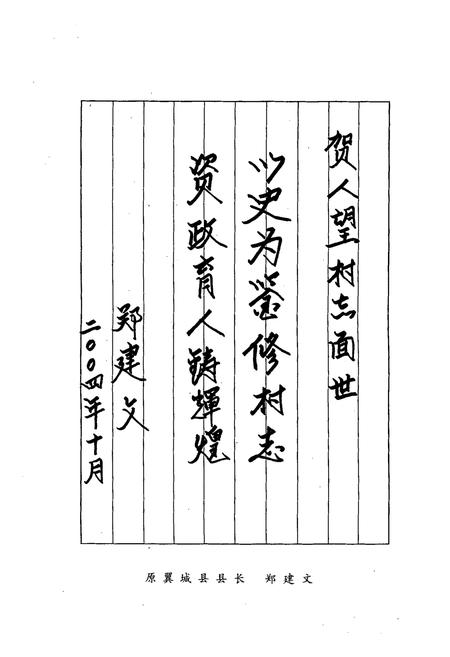 贺人望村志面世
以史为鉴修村志
资政育人铸辉煌
郑建文
二〇〇四年十月
原翼城县县长 郑建文